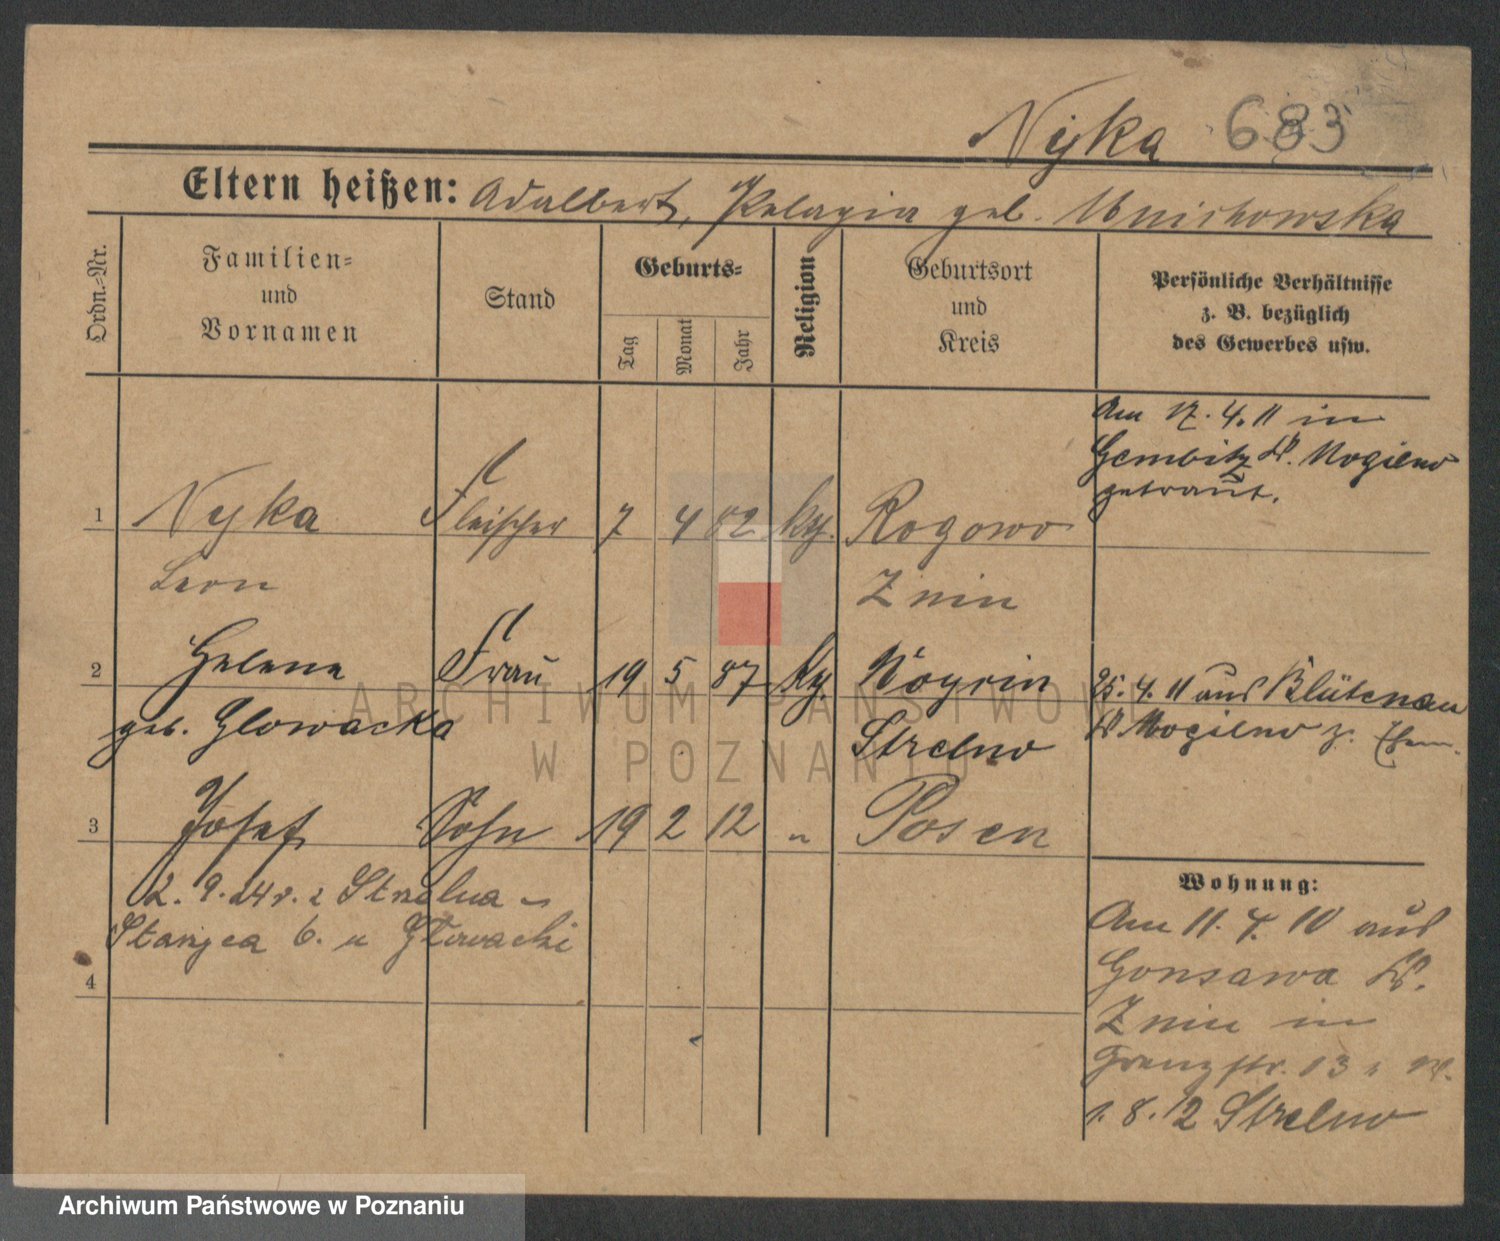 Nyka 683
Eltern heißen: Adalbert, Pelagia geb. Mnichowska
Ordn.-Nr.
Familien-
und
Vornamen
Stand
Geburts-
Tag
Monat
Jahr
Religion
Geburtsort
und
Kreis
Persönliche Verhältnisse
z. B. bezüglich
des Gewerbes usw.
Am 17. 4. 11 in
Gembitz Kr. Mogilno
getraut.
1 Nyka Fleischer 7 4 82 kg. Rogowo
Leon Znin
2 Helene Frau 19 5 87 kg. Woycin
geb. Glowacka Strelno
25. 4. 11 aus Blütenau
Kr. Mogilno z.
3 Josef Sohn 19 2 12 " Posen
2. 9. 24 r. z Strzelna
6. u Głowacki
4
Wohnung:
Am 11. 4. 10 aus
Gonsawa Kr.
Znin in
Grenzstr. 13
1. 8. 12 Strelno
ARCHIWUM PAŃSTWOWE
W POZNANIU
Archiwum Państwowe w Poznaniu